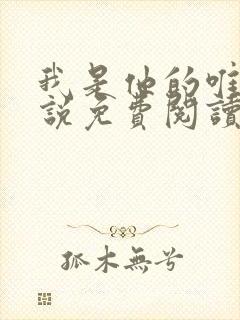 我是他的唯
說免費閱讀
孤木無兮